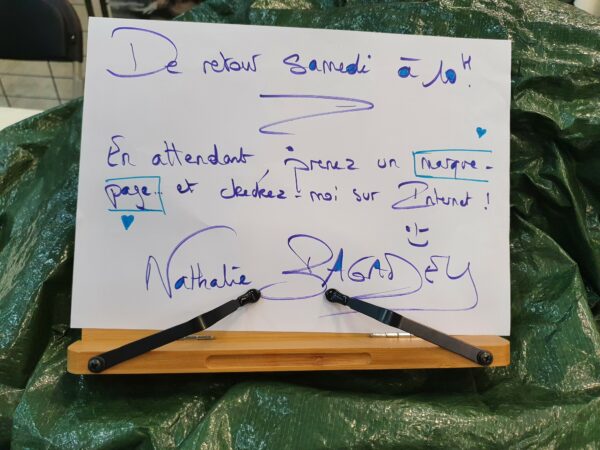 De retour Samedi à 10H.
En attendant, prenez un marque-
page et cherchez-moi sur Internet !
Nathalie BAGADEY